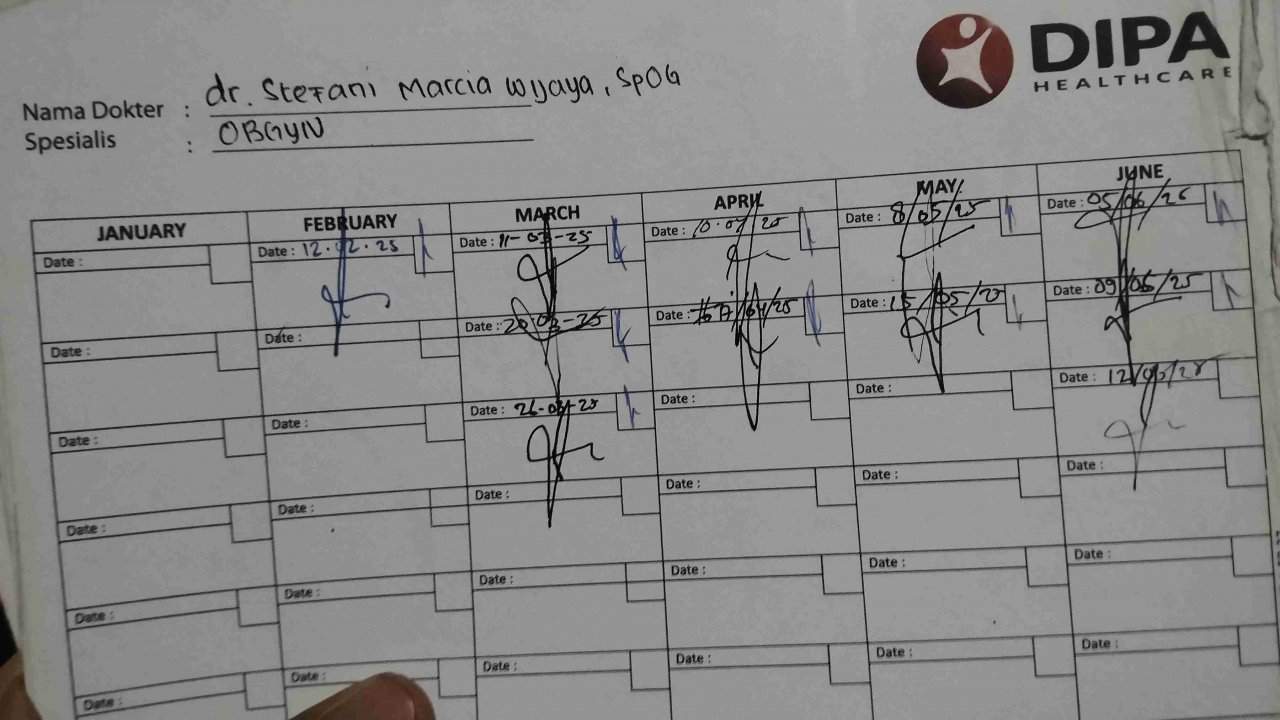 DIPA
HEALTHCARE
Nama Dokter : dr. Stefani Marcia Wijaya, SpOG
Spesialis : OBGYN
JANUARY FEBRUARY MARCH APRIL MAY JUNE
Date : Date : 12.02.25 Date : 11-03-25 Date : 10.04/25 Date : 8/05/25 Date : 05/06/25
Date : Date : Date : 20-03-25 Date : /04/25 Date : 15/05/25 Date : 09/06/25
Date : Date : Date : 26-03-25 Date : Date : Date : 12/
Date : Date : Date : Date : Date : Date :
Date : Date : Date : Date : Date : Date :
Date : Date : Date : Date : Date : Date :